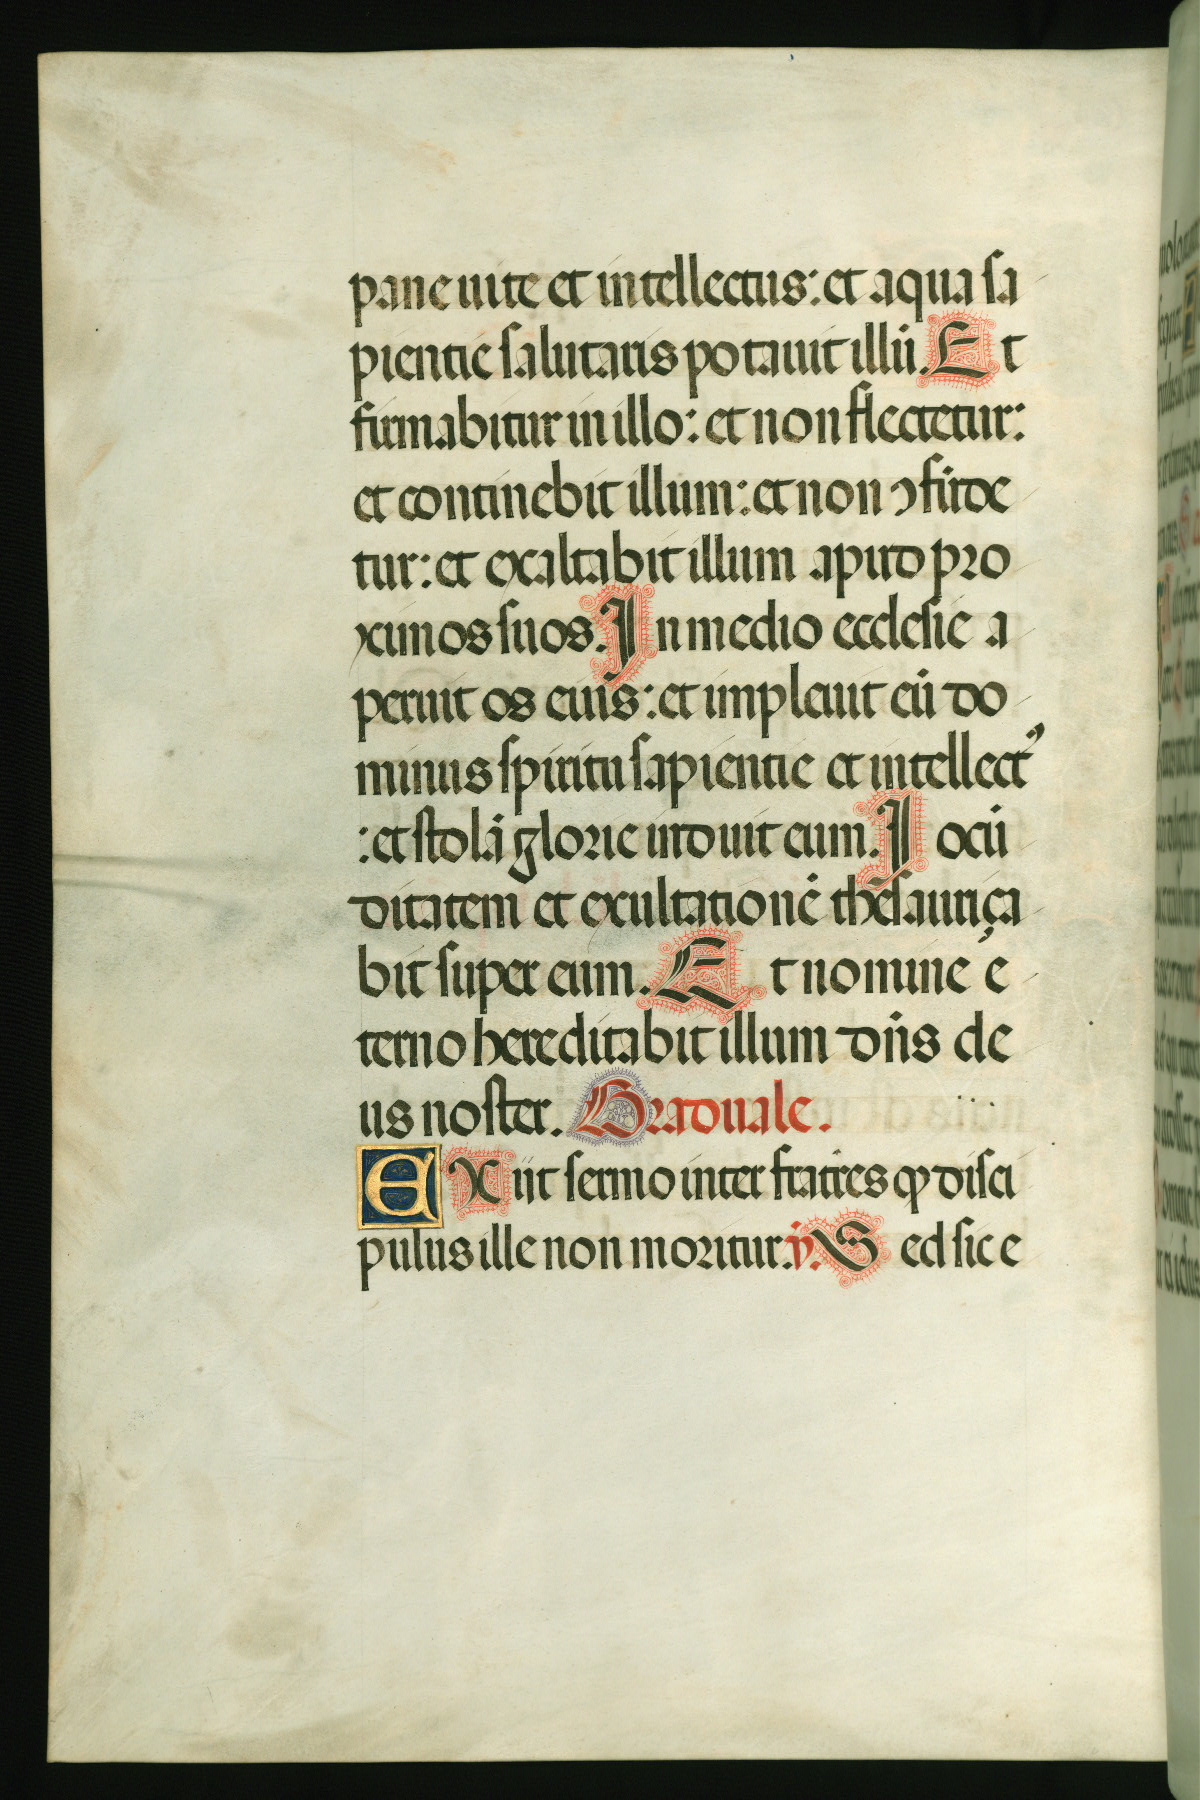 pane uite et intellectus: et aqua sa
pientie salutaris potauit illū. Et
firmabitur in illo: et non flectetur:
et continebit illum: et non ɔfūde
tur: et exaltabit illum apud pro
ximos suos. In medio ecclesie a
peruit os euis: et impleuit eū do
minus spiritu sapientie et intellectꝰ
: et stolā glorie induit eum. Iocū
ditatem et exultationē thesauriça
bit super eum. Et nomine e
terno hereditabit illum dn̄s de
us noster. Graduale.
Exijt sermo inter fratres ꝙ disci
pulus ille non moritur. ℣. Sed sic e